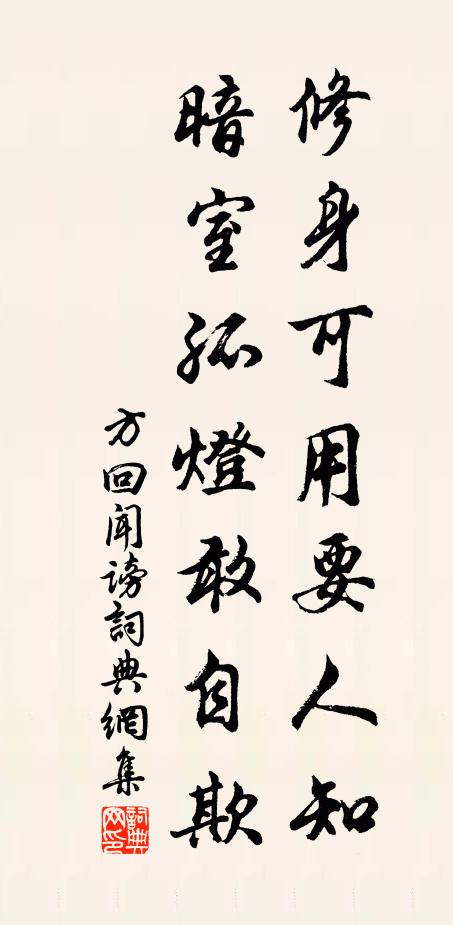 修身可用要人知
暗室孤燈敢自欺
方回聞謗詞典網集
詞典網印